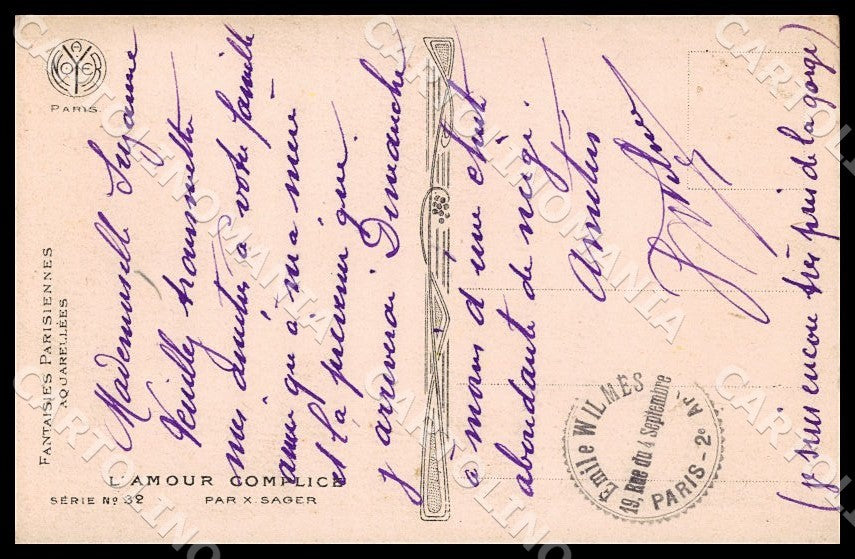 PARIS.
FANTAISIES PARISIENNES
AQUARELLÉES
L'AMOUR COMPLICE
SÉRIE No 32 PAR X. SAGER
Mademoiselle Suzanne
Veuillez transmettre
mes amitiés à votre famille
ainsi qu'à ma mère
et la prévenir que
j'arriverai Dimanche
à moins d'une chute
abondante de neige.
Amitiés
(je suis encore très pris de la gorge)
Emile WILMÈS
19, Rue du 4 Septembre
PARIS - 2e Art
CARTOLINOMANIA